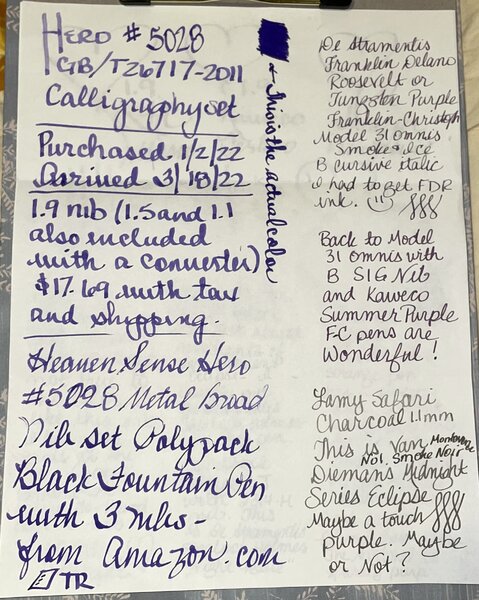 Hero # 5028
GB/T26717-2011
Calligraphy set
Purchased 1/2/22
Arrived 3/18/22
1.9 nib (1.5 and 1.1
also included
with a converter)
$17.69 with tax
and shipping.
Heaven Sense Hero
#5028 Metal Broad
Nib Set Polypack
Black Fountain Pen
with 3 nibs -
from Amazon.com
TR
This is the actual color
De Stramentis
Franklin Delano
Roosevelt or
Tungsten Purple
Franklin-Christoph
Model 31 omnis
Smoke & Ice
B cursive italic
I had to get FDR
ink.
Back to Model
31 omnis with
B SIG Nib
and Kaweco
Summer Purple
F-C pens are
Wonderful!
Lamy Safari
Charcoal 1.1mm
This is Van
No!, Smoke Noir
Diemans Midnight
Series Eclipse
Maybe a touch
purple. Maybe
or Not?